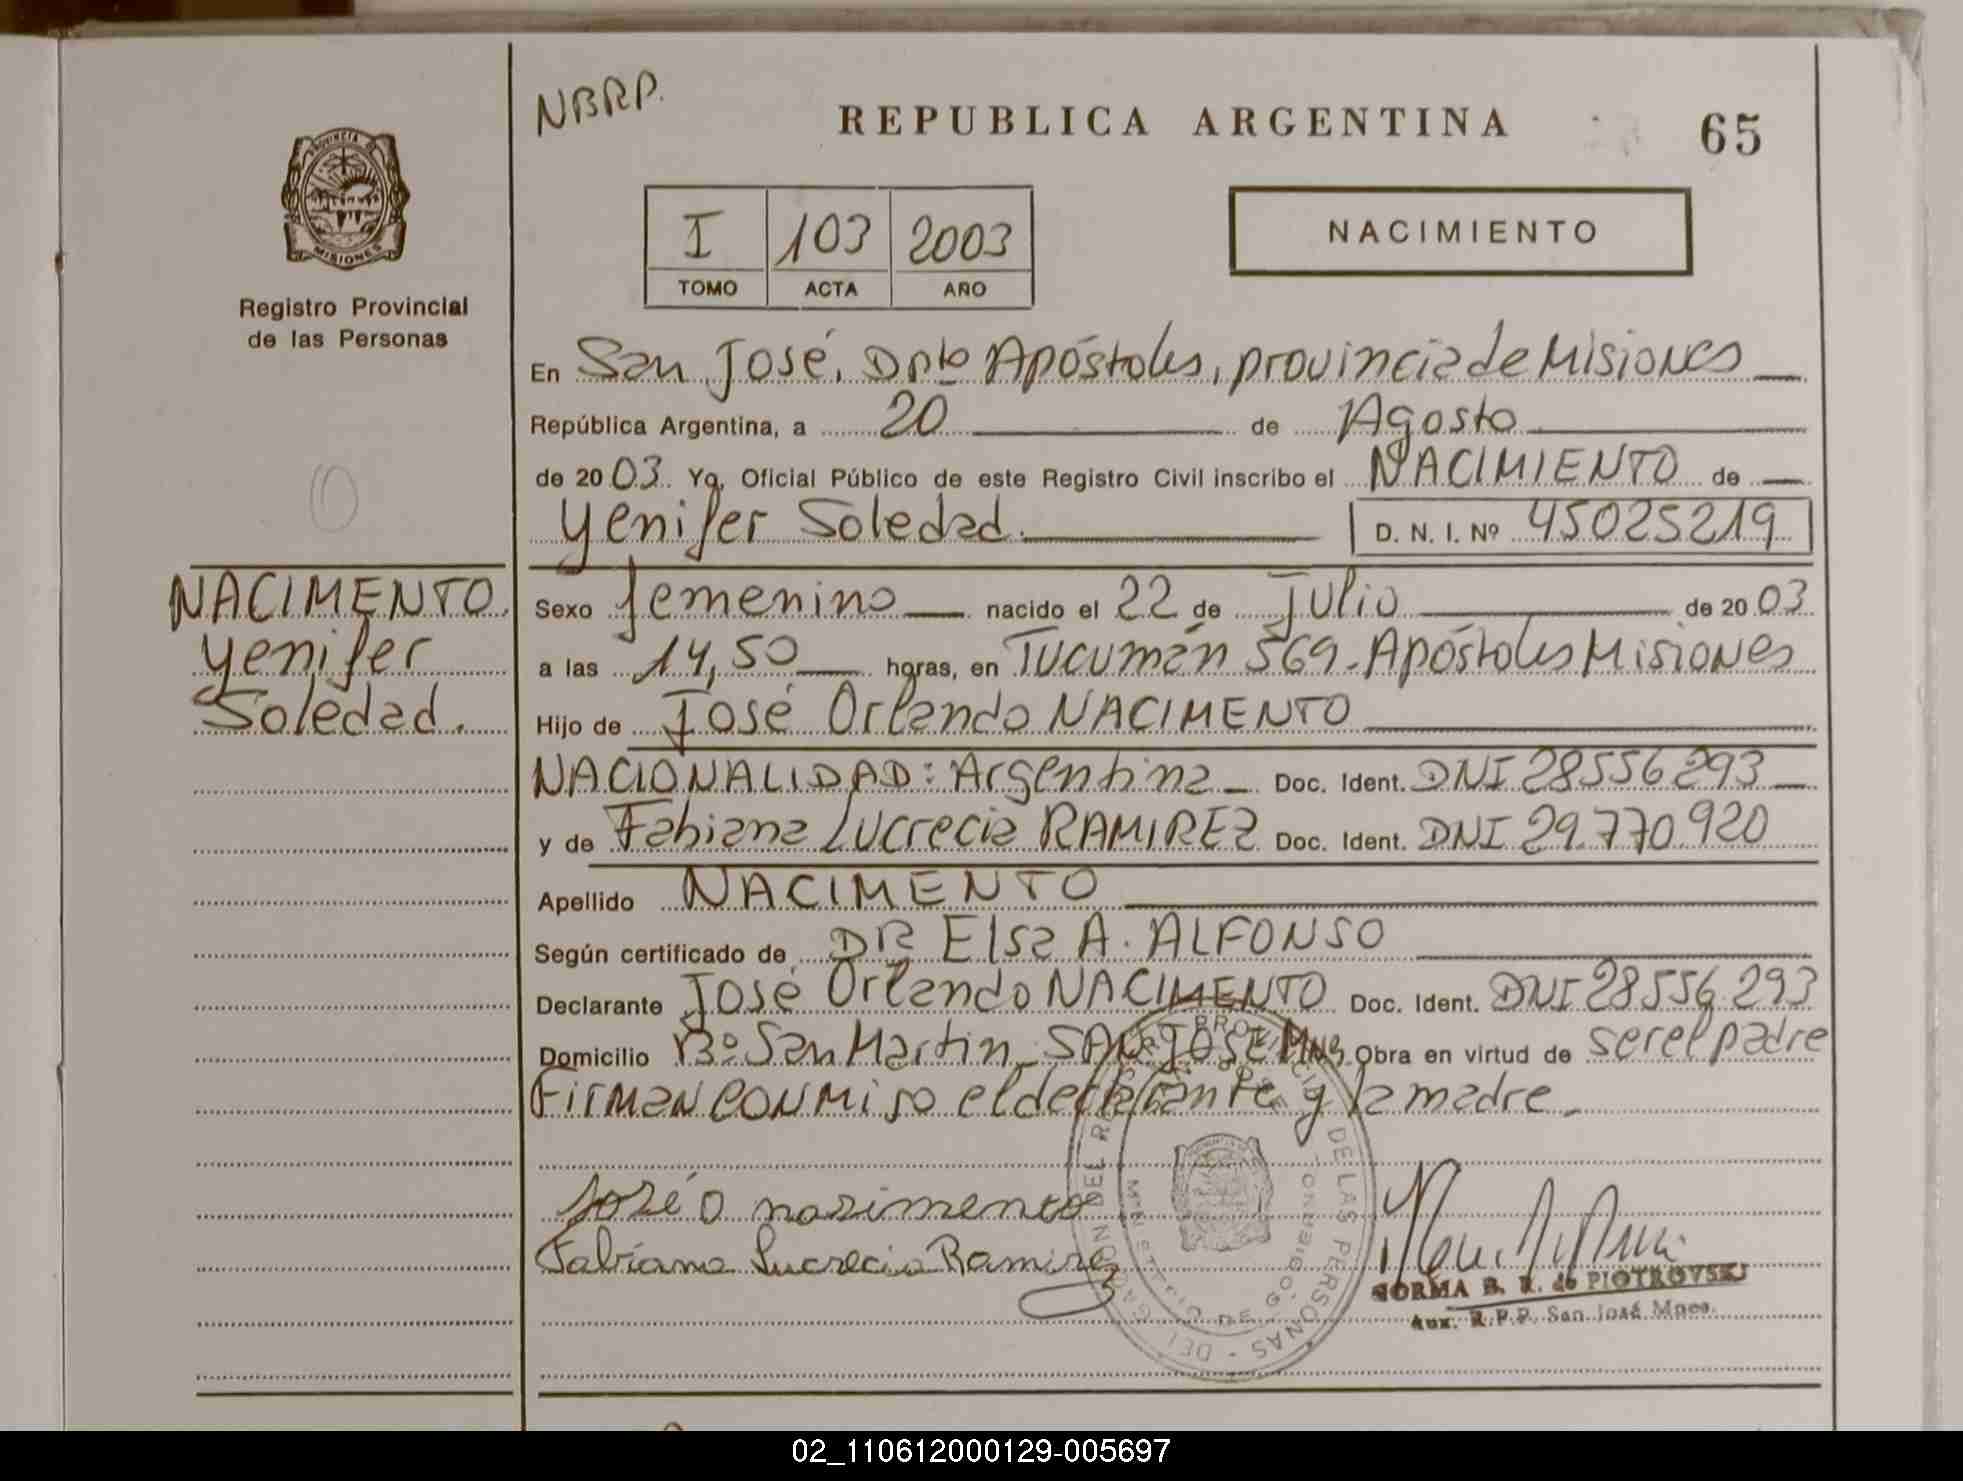 NBRP.
REPUBLICA ARGENTINA
65
PROVINCIA DE
MISIONES
Registro Provincial
de las Personas
I 103 2003
TOMO ACTA AÑO
NACIMIENTO
En San José, Dpto Apóstoles, provincia de Misiones
República Argentina, a 20 de Agosto
de 2003. Yo, Oficial Público de este Registro Civil inscribo el NACIMIENTO de
Yenifer Soledad. D. N. I. Nº 45025219
NACIMENTO
Yenifer
Soledad.
Sexo femenino nacido el 22 de Julio de 2003
a las 14,50 horas, en Tucumán 569 - Apóstoles Misiones
Hijo de José Orlando NACIMENTO
NACIONALIDAD: Argentina Doc. Ident. DNI 28556293
y de Fabiana Lucrecia RAMIREZ Doc. Ident. DNI 29.770.920
Apellido NACIMENTO
Según certificado de DRa Elsa A. ALFONSO
Declarante José Orlando NACIMENTO Doc. Ident. DNI 28556.293
Domicilio Bº San Martin - SAN JOSE Mnes Obra en virtud de ser el padre
Firman conmigo el declarante y la madre.
José O nasimento
Fabiana Lucrecia Ramirez
NORMA B. R. de PIOTROVSKI
Aux. R.P.P. San José Mnes.
DE LAS PERSONAS
02_110612000129-005697